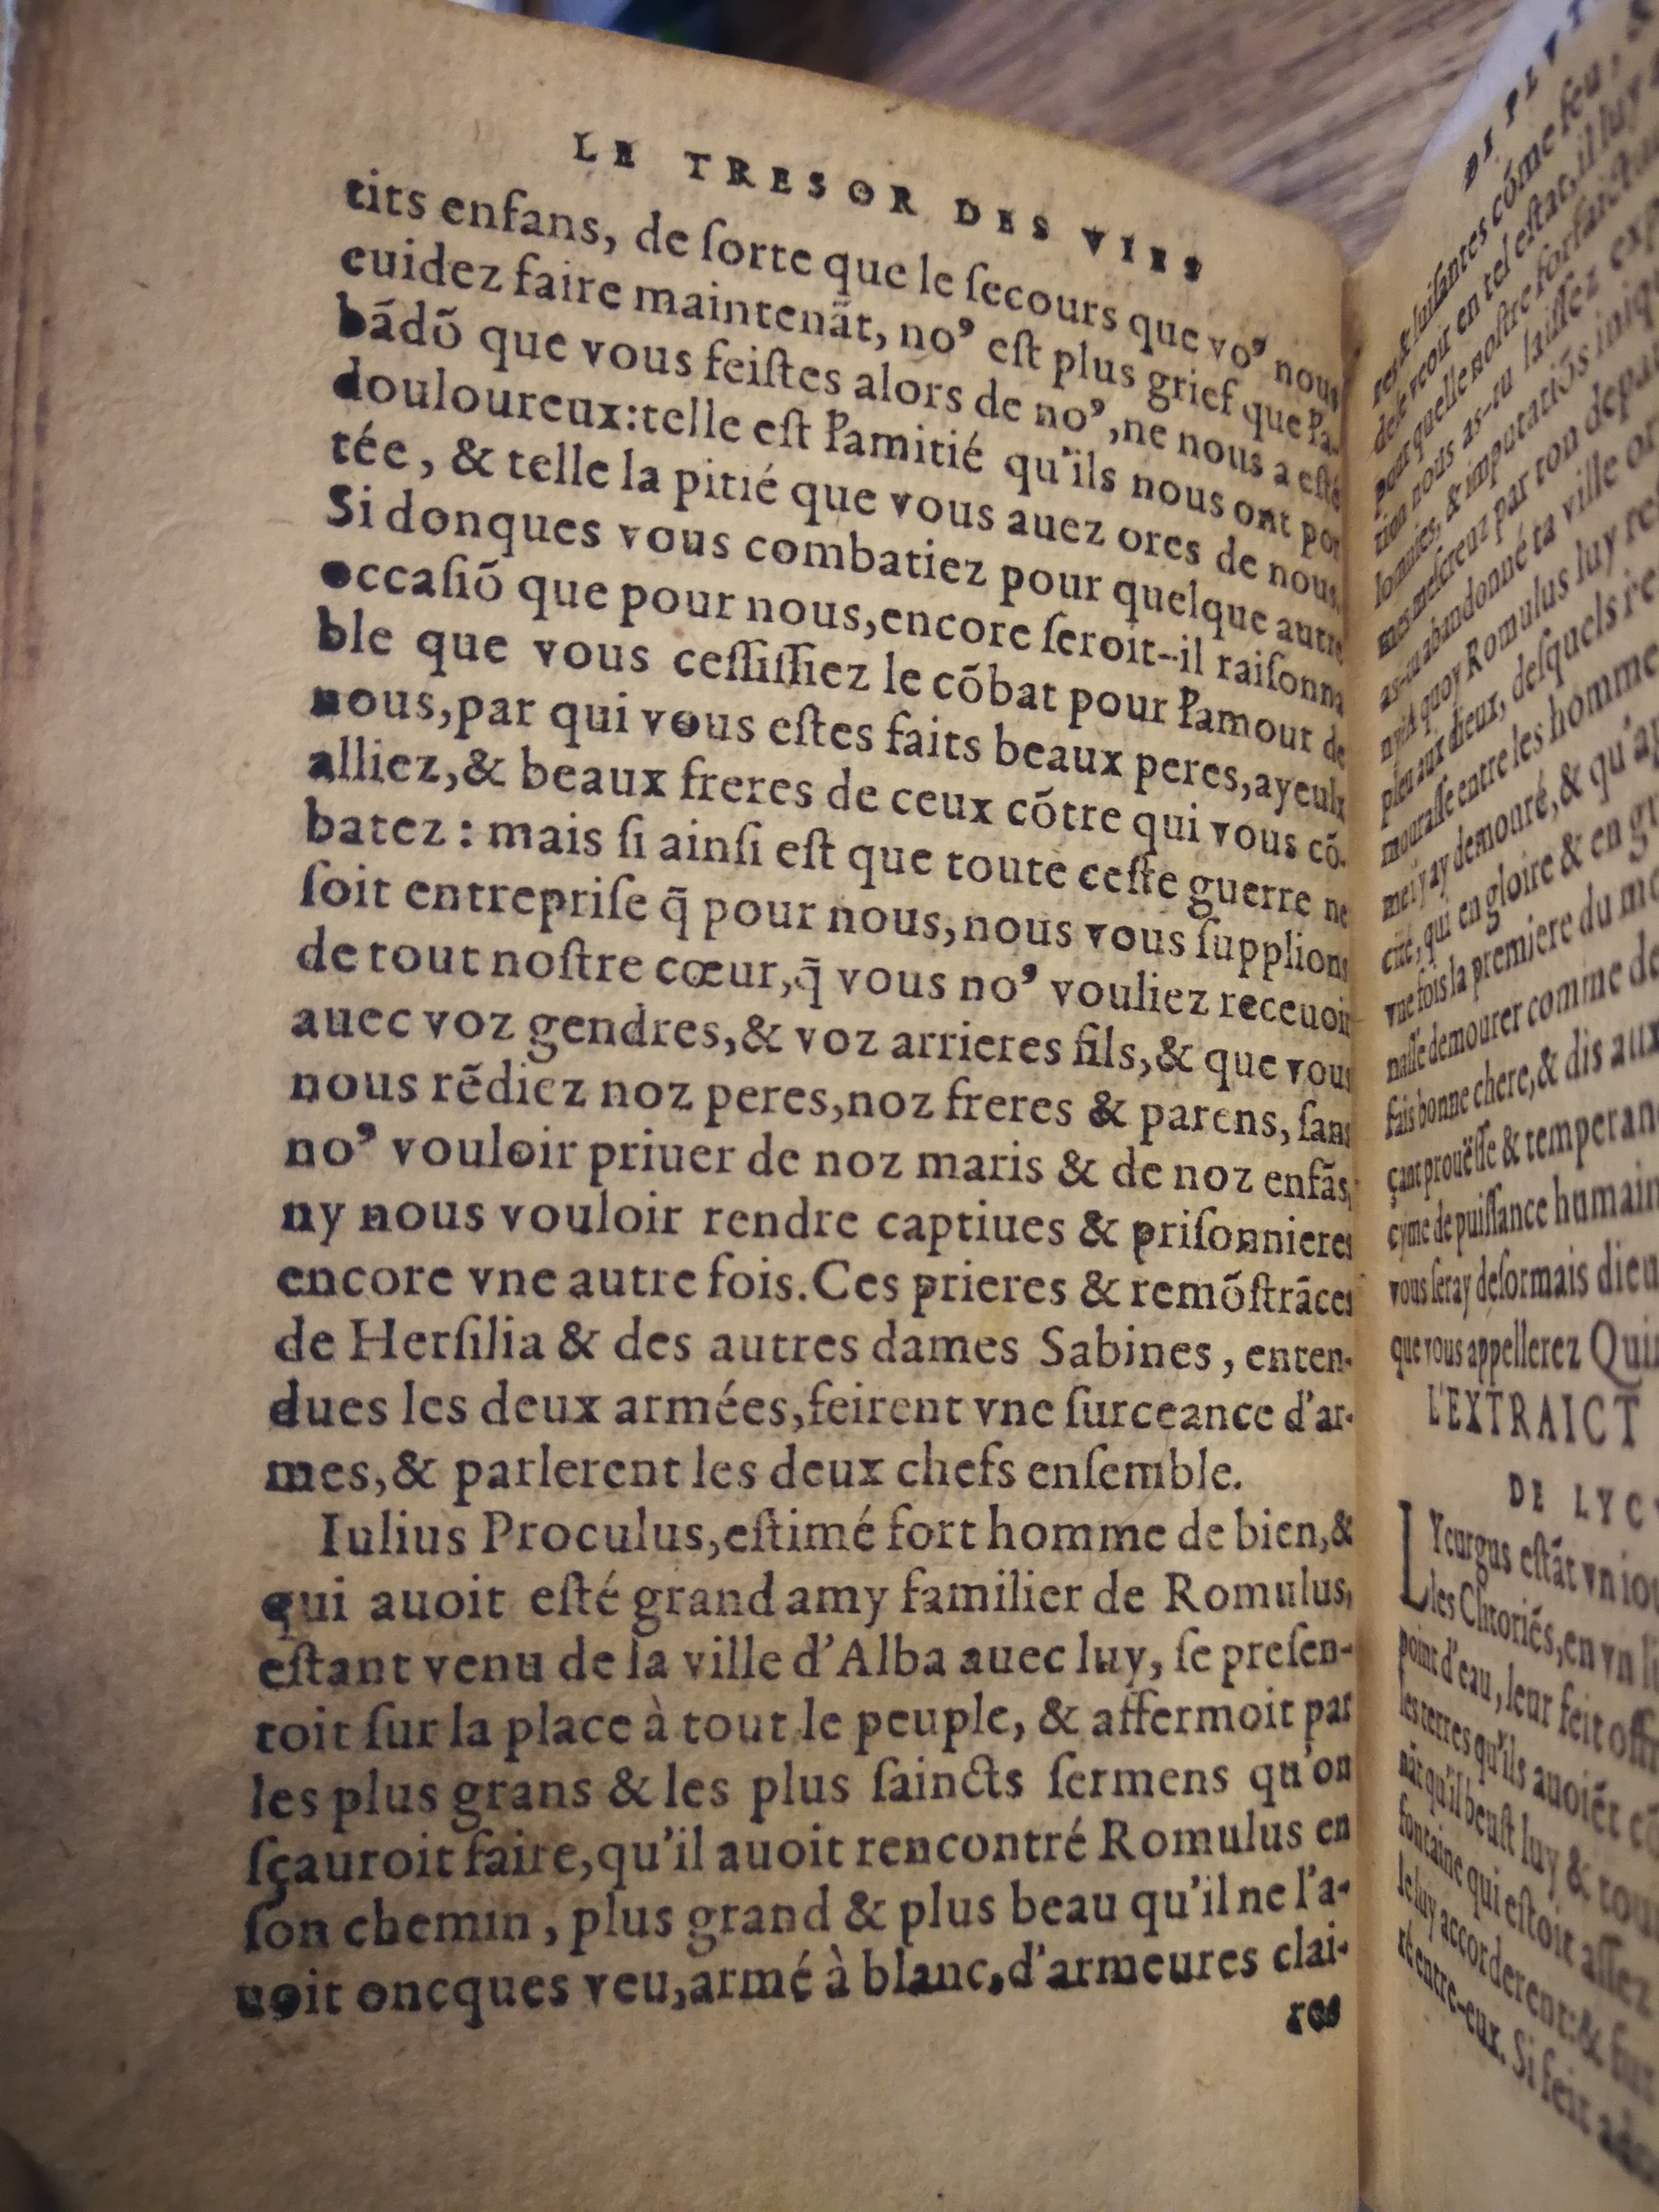 LE TRESOR DES VIES
tits enfans, de ſorte que le ſecours que vo⁹ nous
cuidez faire maintenãt, no⁹ eſt plus grief que l'a-
bãdõ que vous feiſtes alors de no⁹, ne nous a eſté
douloureux: telle eſt l'amitié qu'ils nous ont por
tée, & telle la pitié que vous auez ores de nous.
Si donques vous combatiez pour quelque autre
occaſiõ que pour nous, encore ſeroit-il raiſonna
ble que vous ceſſiſſiez le cõbat pour l'amour de
nous, par qui vous eſtes faits beaux peres, ayeulx
alliez, & beaux freres de ceux cõtre qui vous cõ-
batez: mais ſi ainſi eſt que toute ceſte guerre ne
ſoit entrepriſe q̃ pour nous, nous vous ſupplions
de tout noſtre cœur, q̃ vous no⁹ vouliez receuoir
auec voz gendres, & voz arrieres fils, & que vous
nous rẽdiez noz peres, noz freres & parens, ſans
no⁹ vouloir priuer de noz maris & de noz enfãs,
ny nous vouloir rendre captiues & priſonnieres
encore vne autre fois. Ces prieres & remõſtrãces
de Herſilia & des autres dames Sabines, enten-
dues les deux armées, feirent vne ſurceance d'ar-
mes, & parlerent les deux chefs enſemble.
Iulius Proculus, eſtimé fort homme de bien, &
qui auoit eſté grand amy familier de Romulus,
eſtant venu de la ville d'Alba auec luy, ſe preſen-
toit ſur la place à tout le peuple, & affermoit par
les plus grans & les plus ſaincts ſermens qu'on
ſçauroit faire, qu'il auoit rencontré Romulus en
ſon chemin, plus grand & plus beau qu'il ne l'a-
uoit oncques veu, armé à blanc, d'armeures clai-
res
luiſantes cõme feu,
en tel eſtat, il luy
pour quelle noſtre
tion nous as-tu laiſſez
& imputatiõs
par ton
as-tu abandonné ta ville
quoy Romulus luy
pleu aux dieux, deſquels
mouraſſe entre les homme
y ay demouré, & qu'a
cité, qui en gloire & en
vne fois la premiere du
naſſe demourer comme
fais bonne chere, & dis aux
çant prouëſſe & temperan
cyme de puiſſance humain
vous ſeray deſormais dieu
que vous appellerez Qui
L'EXTRAICT
DE LYC
LYcurgus eſtãt vn iou
les Clitoriẽs, en vn li
point d'eau, leur feit offr
les terres qu'ils auoiẽt
nãt qu'il beuſt luy & tou
fontaine qui eſtoit aſſez
le luy accorderent: & fut
ré entre-eux. Si feit